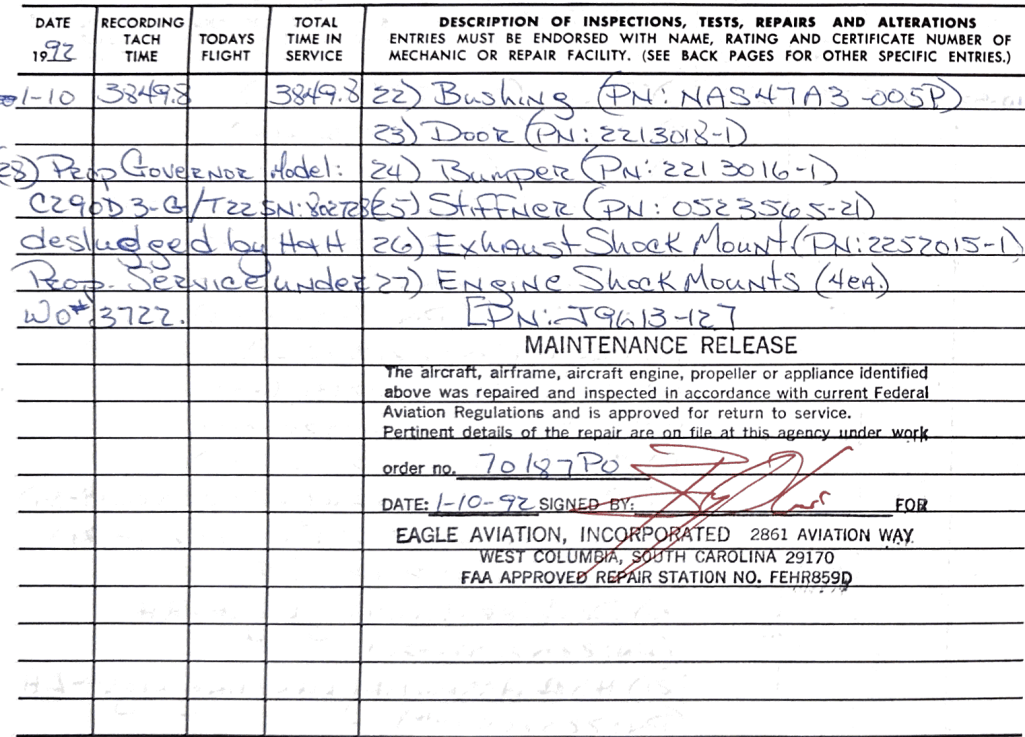 DATE
1992
RECORDING
TACH
TIME
TODAYS
FLIGHT
TOTAL
TIME IN
SERVICE
DESCRIPTION OF INSPECTIONS, TESTS, REPAIRS AND ALTERATIONS
ENTRIES MUST BE ENDORSED WITH NAME, RATING AND CERTIFICATE NUMBER OF
MECHANIC OR REPAIR FACILITY. (SEE BACK PAGES FOR OTHER SPECIFIC ENTRIES.)
1-10 3849.8 3849.8 22) Bushing (PN: NAS47A3-005P)
23) Door (PN: 2213018-1)
28) Prop Governor Model: 24) Bumper (PN: 2213016-1)
C290D3-G/T22 SN: 802728 25) Stiffner (PN: 0523565-21)
desludged by H&H 26) Exhaust Shock Mount (PN: 2252015-1)
Prop. Service under 27) Engine Shock Mounts (4ea.)
WO# 3722. [PN: J9613-127
MAINTENANCE RELEASE
The aircraft, airframe, aircraft engine, propeller or appliance identified
above was repaired and inspected in accordance with current Federal
Aviation Regulations and is approved for return to service.
Pertinent details of the repair are on file at this agency under work
order no. 70187PO
DATE: 1-10-92 SIGNED BY: FOR
EAGLE AVIATION, INCORPORATED 2861 AVIATION WAY
WEST COLUMBIA, SOUTH CAROLINA 29170
FAA APPROVED REPAIR STATION NO. FEHR859D